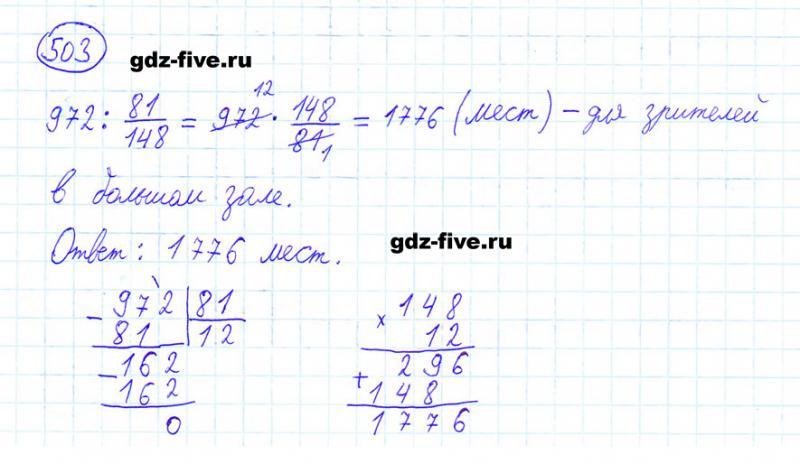 503
gdz-five.ru
972 : 81/148 = 972 12 · 148/81 1 = 1776 (мест) – для зрителей
в большом зале.
Ответ: 1776 мест.
gdz-five.ru
– 972 | 81
81 | 12
– 162
162
0
× 148
12
296
+ 148
1776